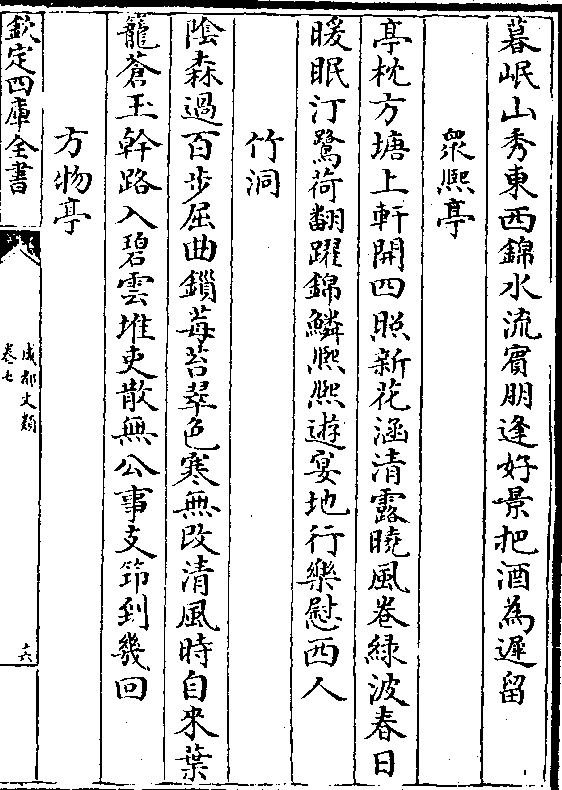 暮岷山秀東西錦水流賓朋逢好景把酒為遲留
衆熈亭
亭枕方塘上軒開四照新花涵清露曉風卷緑波春日
暖眠汀鷺荷翻躍錦鱗熈熈遊宴地行樂慰西人
竹洞
隂森過百步屈曲鎖莓苔翠色寒無改清風時自來葉
籠蒼玉幹路入碧雲堆吏散無公事支筇到幾回
方物亭
欽定四庫全書
成都文類
卷七
十六